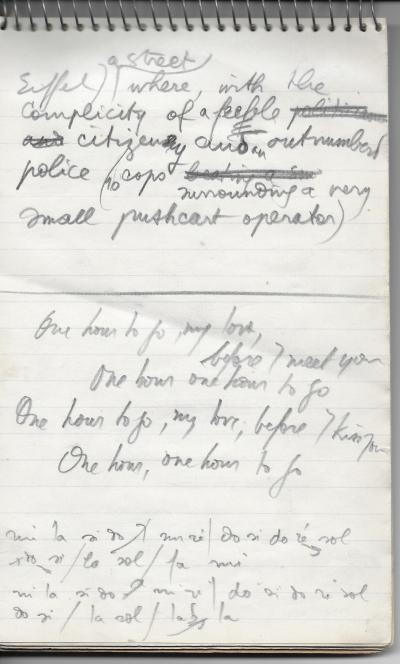 a street
Eiffel) where, with the
complicity of a feeble
citizenry and an outnumbered
police (10 cops
surrounding a very
small pushcart operator)
One hour to go, my love,
before I meet you
One hour one hour to go
One hour to go, my love, before I kiss you
One hour, one hour to go
mi la si do / mi ré / do si do ré sol
do si / la sol / fa mi
mi la si do / mi ré / do si do ré sol
do si / la sol / la la